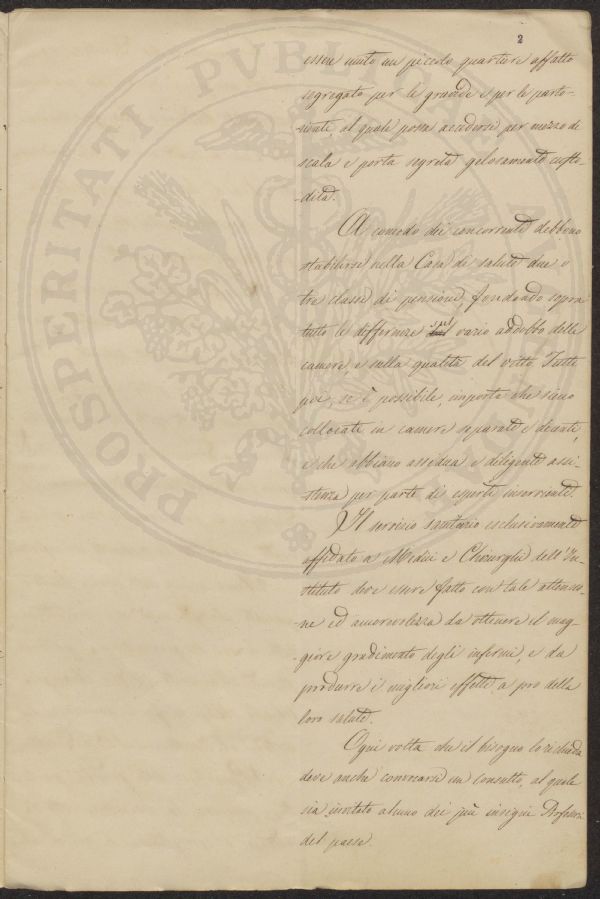 2
essere unito un piccolo quartiere affatto
segregato per le gravide e per le parto-
rienti, al quale possa accedersi per mezzo di
scala e porta segreta gelosamente custo-
-dita.
A comodo dei concorrenti debbono
stabilirsi nella Casa di salute due o
tre classi di pensioni, fondando sopra
tutto le differenze sul vario addobbo delle
camere, e sulla qualità del vitto. Tutti
poi, se è possibile, importa che siano
collocati in camere separate e decenti,
e che abbiano assidua e diligente assi-
stenza per parte di esperti inservienti.
Il servizio sanitario esclusivamente
affidato a Medici e Chirurghi dell'In-
stituto deve essere fatto con tale attenzio-
-ne ed amorevolezza da ottenere il mag-
-giore gradimento degli infermi, e da
produrre i migliori effetti a pro della
loro salute.
Ogni volta che il bisogno lo richieda
deve anche convocarsi un consulto, al quale
sia invitato alcuno dei più insigni Professori
del paese.
PROSPERITATI PVBLICAE